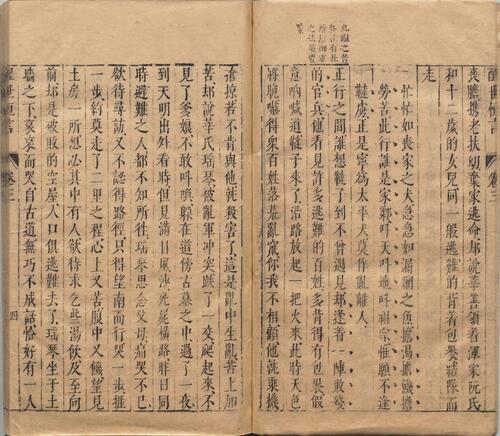 醒世恆言 卷三
喪膽攜老扶幼棄家逃命却說莘善領着渾家阮氏
和十二歲的女兒同一般逃難的背着包裹結隊而
走
忙忙如喪家之犬急急如漏網之魚擔渴擔饑擔
勞苦此行誰是家鄉叫天叫地叫祖宗惟願不逢
韃虜正是寧爲太平犬莫作亂離人
正行之間誰想韃子到不曾遇見却逢着一陣敗殘
的官兵他看見許多逃難的百姓多背得有包裹假
意吶喊道韃子來了沿路放起一把火來此時天色
將晚嚇得衆百姓落荒亂竄你我不相顧他就乘機
亂離之苦
有此
所以御軍
之法最要
緊
搶掠若不肯與他就殺害了這是亂中生亂苦上加
苦却說莘氏瑤琴被亂軍冲突跌了一交爬起來不
見了爹娘不敢叫喚躲在道傍古墓之中過了一夜
到天明出外看時但見滿目風沙死屍橫路昨日同
時避難之人都不知所往瑤琴思念父母痛哭不已
欲待尋訪又不認得路徑只得望南而行哭一步捱
一步約莫走了二里之程心上又苦腹中又饑望見
土房一所想必其中有人欲待求乞些湯飲及至向
前却是破敗的空屋人口俱逃難去了瑤琴坐于土
牆之下哀哀而哭自古道無巧不成話恰好有一人
醒世恆言 卷三 四